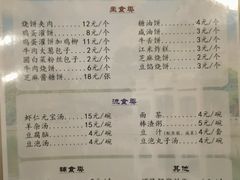 主食类
烧饼夹肉 12元/个
鸡蛋灌饼 8元/个
鸡蛋灌饼加鸡柳 11元/个
牛肉大葱包子 2元/个
圆白菜粉丝包子 2元/个
牛肉烧饼 6元/个
芝麻酱糖饼 18元/张
糖油饼 4元/个
咸油饼 3元/个
牛舌饼 3元/个
江米炸糕 3元/个
芝麻烧饼 2元/个
豆馅烧饼 3元/个
流食类
虾仁元宝汤 15元/碗
羊杂汤 15元/碗
豆腐脑 5元/碗
豆泡汤 5元/碗
面茶 5元/碗
棒渣粥 3元/碗
豆汁 3元/碗
豆泡丸子汤 8元/碗
辅食类
其他